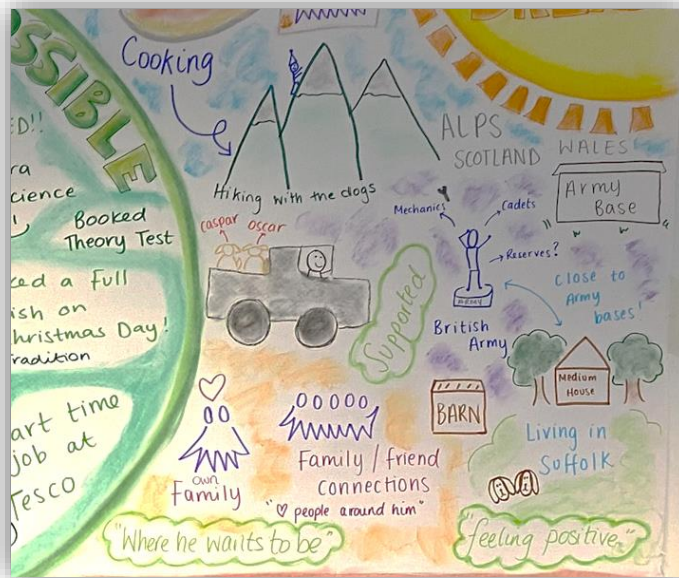 SSIBLE
ED!!
ra
cience
Booked
Theory Test
ked a full
ish on
hristmas Day!
radition
art time
job at
Tesco
Cooking
Hiking with the dogs
ALPS
SCOTLAND
WALES
Army
Base
Mechanic?
Cadets
Reserves?
ARMY
British
Army
close to
Army
bases!
caspar oscar
Supported
BARN
Medium
House
Living in
Suffolk
own
Family
Family / friend
Connections
"♡ people around him"
"Where he wants to be"
"feeling positive"